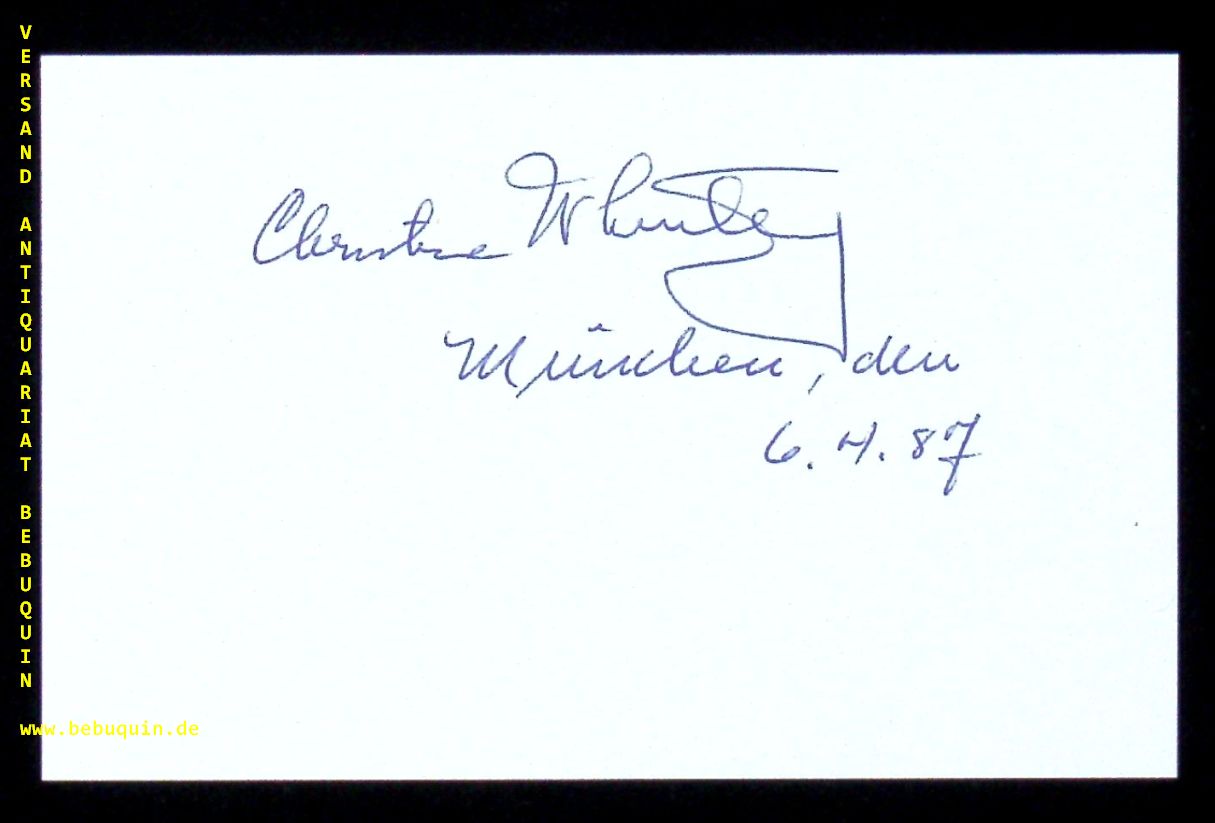 VERSAND ANTIQUARIAT BEBUQUIN
Christine
München, den
6. 4. 87
www.bebuquin.de